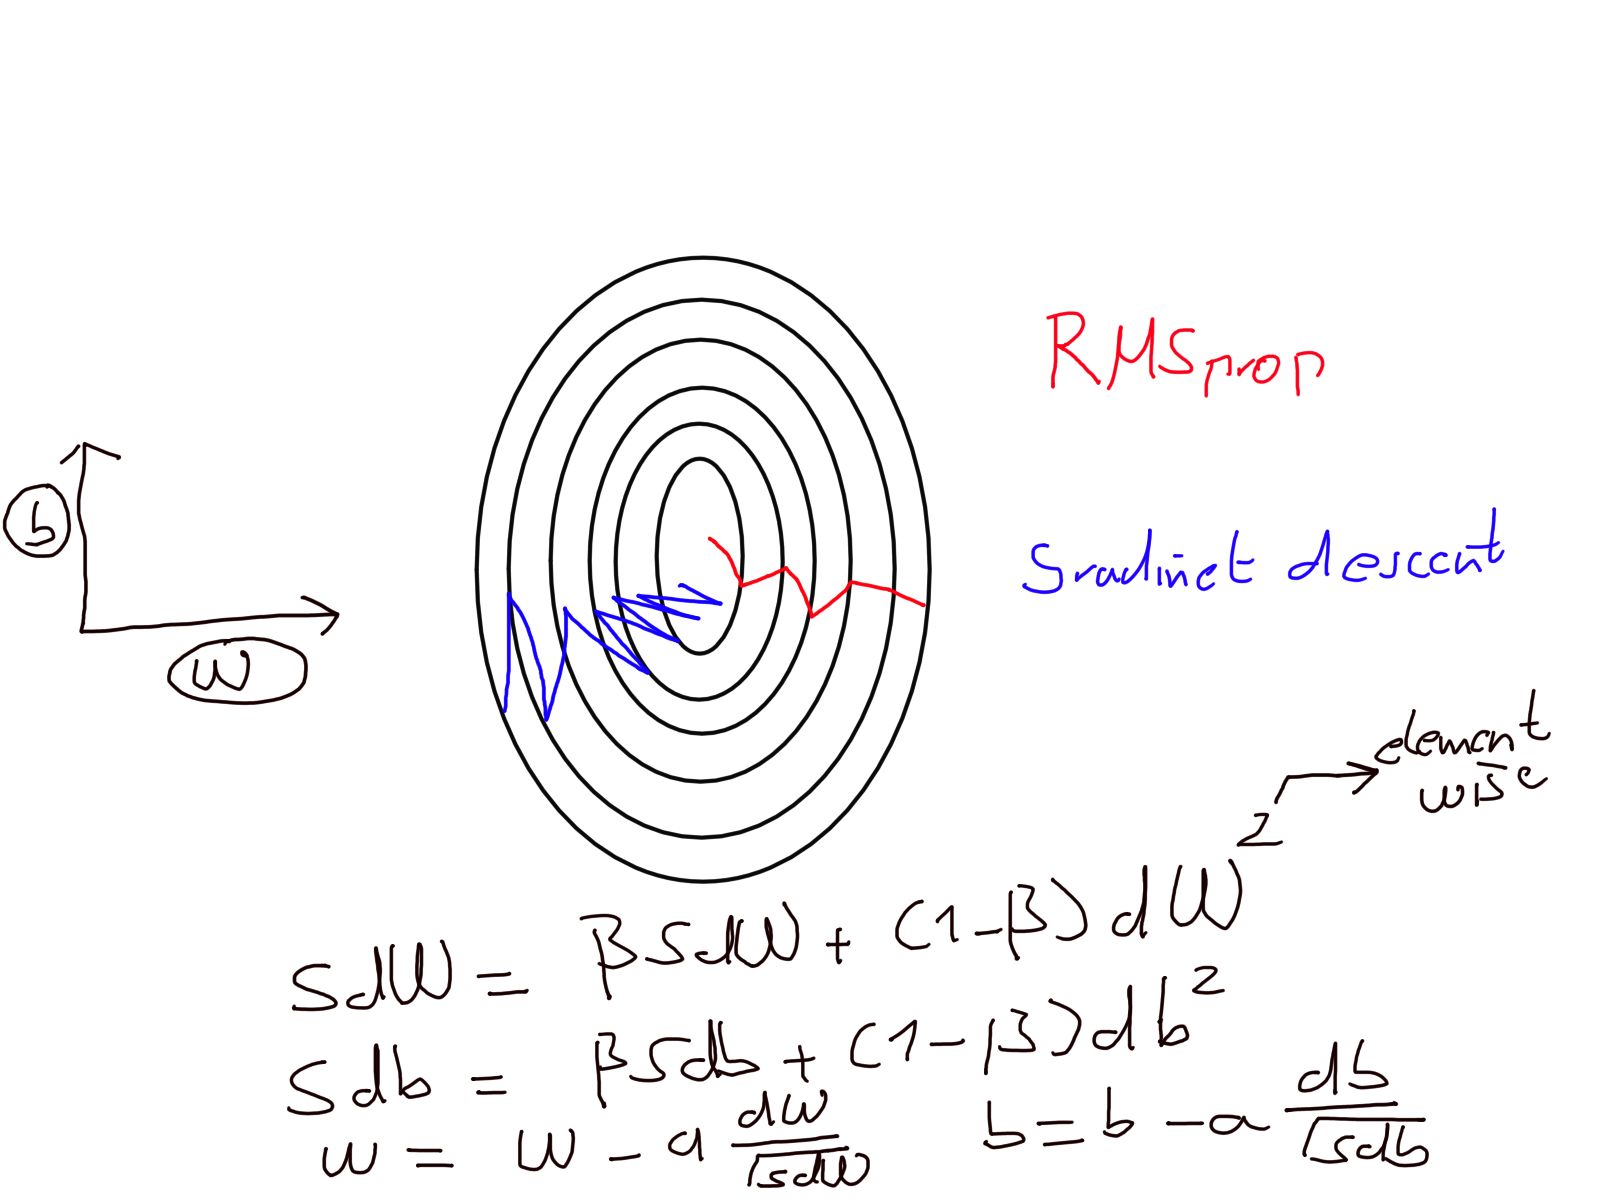 RMSprop
b
Sradinet descent
w
element
wise
SdW = βSdW + (1-β)dW²
Sdb = βSdb + (1-β)db²
w = w - a dw/√sdW
b = b - a db/√sdb